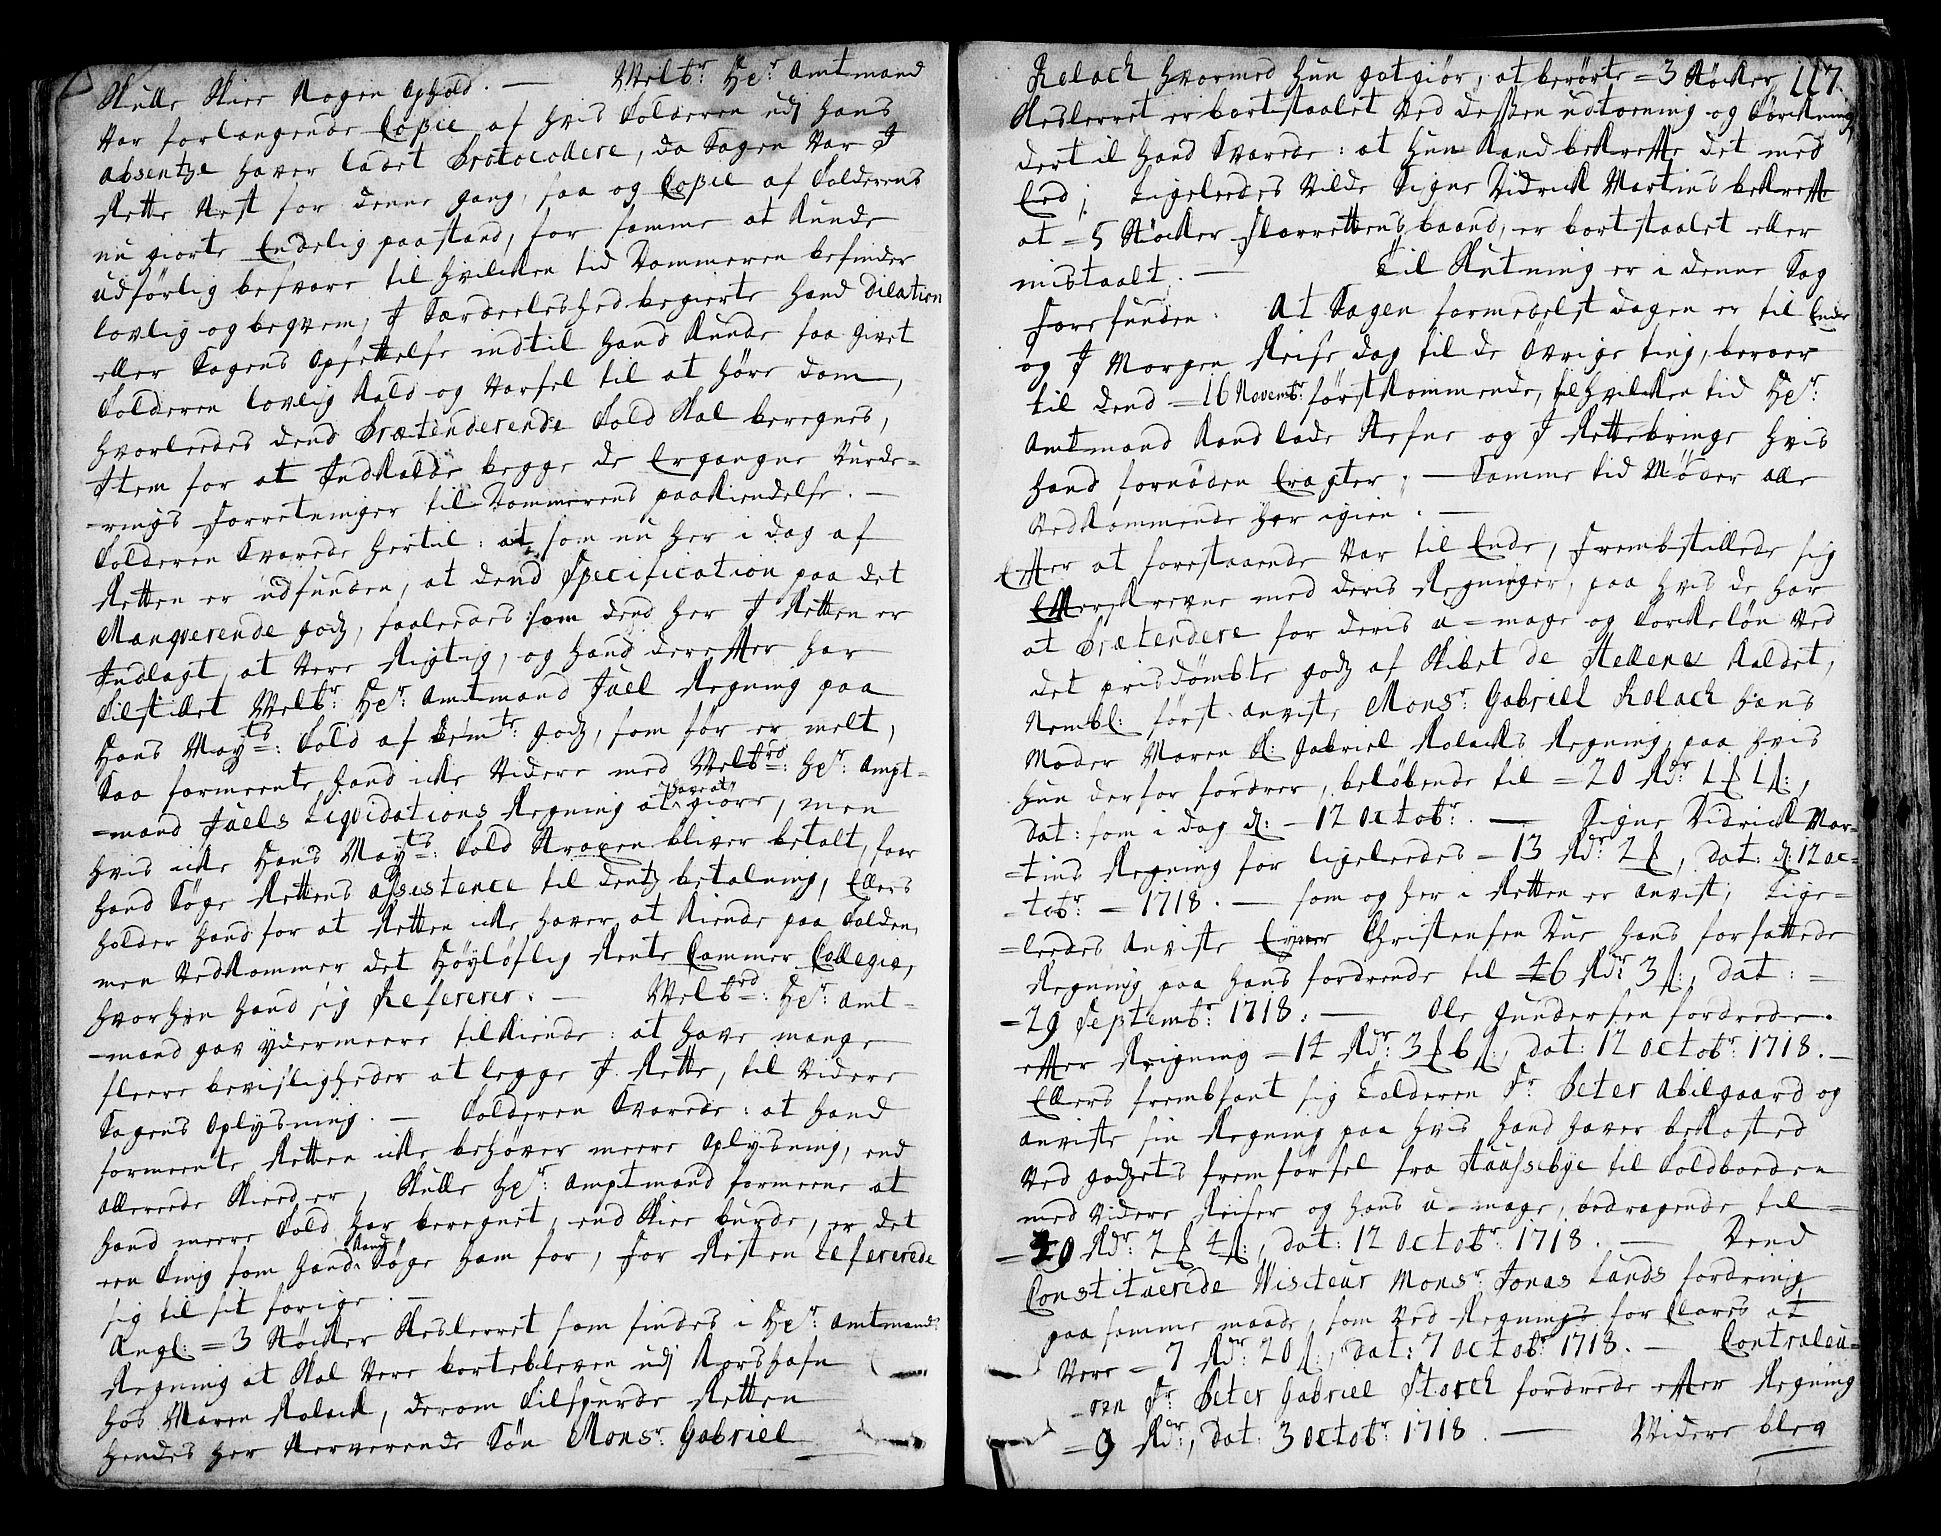 skulle skee nogen ophold. — Welb.r He.r Amtmand
var forlangende Copie af hvis Tolderen udj hans
absentze haver ladet Protocollere, da Sagen var I
Rette nest for denne gang, saa og Copie af Tolderens
nu giorte Endelig paastand, for samme at kunde
udförlig besvare til hvilken tid Dommeren befinder
lovlig og beqvem, I Særdeelished begierte hand Dilation
eller Sagens Opsettelse indtil hand kunde faa givet
Tolderen lovlig kald og varsel til at höre dom,
hvorleedes dend Prætenderende Told skal beregnes,
Item for at Indkalde begge de Ergangne vurde-
-rings Forretninger til Dommerens paakiendelse. —
Tolderen Svarede hertil: at som nu her i dag af
Retten er udfunden, at dend Specification paa det
Manqverende godz, saaledes som dend her I Retten er
Indlagt, at vere Rigtig, og hand derefter har
Tilstillet Welb.r He.r Amtmand Juel Regning paa
Hans May.ts Told af bem.te godz, som för er melt,
Saa formeente hand icke videre med Welb.rd He.r Ampt-
-mand Juels Liqvidations Regning at have at giöre, men
hvis icke Hans May.ts Told kragen bliver betalt, faar
hand Söge Rettens assistence til dentz betalning, Ellers
holder hand for at Retten icke haver at kiende paa Tolden,
men vedkommer det Höylöflig Rente Cammer Collegie,
hvorhen hand sig Refererer. — Welb.rd He.r Amt-
-mand gav ydermeere tilkiende: at have mange
fleere bevisligheder at legge I Rette, til videre
Sagens Oplysning. — Tolderen Svarede: at hand
formeente Retten icke behöver meere Oplysning, end
allereede skeed er, skulle He.r Amptmand formeene at
hand meere Told har beregnet, end skee burde, er det
een ting som hand kand Söge ham for, for Resten Refererede
sig til sit forige. —
Angl: = 3 Stöcker Neslerret som findes i He.r Amtmands
Regning at skal vere bortebleven udj Korshafn
hos Maren Rolack, derom Tilspurde Retten
hendes her nerverende Sön Mons.r Gabriel
117.
Rolack hvormed hun gotgiör, at berörte = 3 Stöcker
Neslerret er bortstaalet ved dessen udtoening og Törckning
dertil hand Svarede: at hun kand bekrefte det med
Eed; Ligeleedes vilde Signe Didrick Martins bekrefte
at = 5 Stöcker Florrettens baand, er bortstaalet eller
mistaalt. — Til Slutning er i denne Sag
Forefunden. At Sagen formedelst dagen er til Ende
og I Morgen Reise dag til de övrige ting, beroer
til dend = 16 Novemb.r förstkommende, til hvilken tid He.r
Amtmand kand lade stefne og I Rettebringe hvis
hand fornöden Eragter; — Samme tid Möder alle
vedkommende her igien. —
Efter at forestaaende var til Ende, frembstillede sig
Efterskrevne med deris Regninger, paa hvis de har
at Prætendere for deris u=mage og Torckelön ved
det prisdömbte godz af Skibet de Hellene kaldet,
Nembl: först anviste Mons.r Gabriel Rolack hans
Moder Maren Sl: Gabriel Rolacks Regning, paa hvis
hun derfor fordrer, belöbende til = 20 Rdr 1 f 1 s,
dat: som i dag d: — 12 Octob.r — Signe Didrick Mar-
-tins Regning for ligeleedes = 13 Rdr 2 f, dat: d: 12 Oc-
-tob.r = 1718. — som og her i Retten er anvist; Lige-
-leedes anviste Christensen Due hans forfattede
Regning paa hans fordrende til = 46 Rdr 3 s, dat: =
= 29 Septemb.r 1718. — Ole Gundersen fordrede
efter Reigning = 14 Rdr 3 f 6 s, dat: 12 Octob.r 1718. —
Ellers frembfant sig Tolderen S.r Peter Abilgaard og
anviste sin Regning paa hvis hand haver bekosted
ved godzets fremförsel fra til Toldboeden
med videre Reiser og hans u=mage, bedragende til =
= 20 Rdr 2 f 4 s, dat: 12 Octob.r 1718. — Dend
Constituerede Visiteur Mons.r Jonas Lunds fordring
paa samme maade, som ved Regnings for Clares at
vere = 7 Rdr 20 s, dat: 7 Octob.r 1718. — Controleu-
-ren S.r Peter Gabriel Storch fordrede efter Regning
= 9 Rdr, dat. 3 Octob.r 1718. — Widere blev